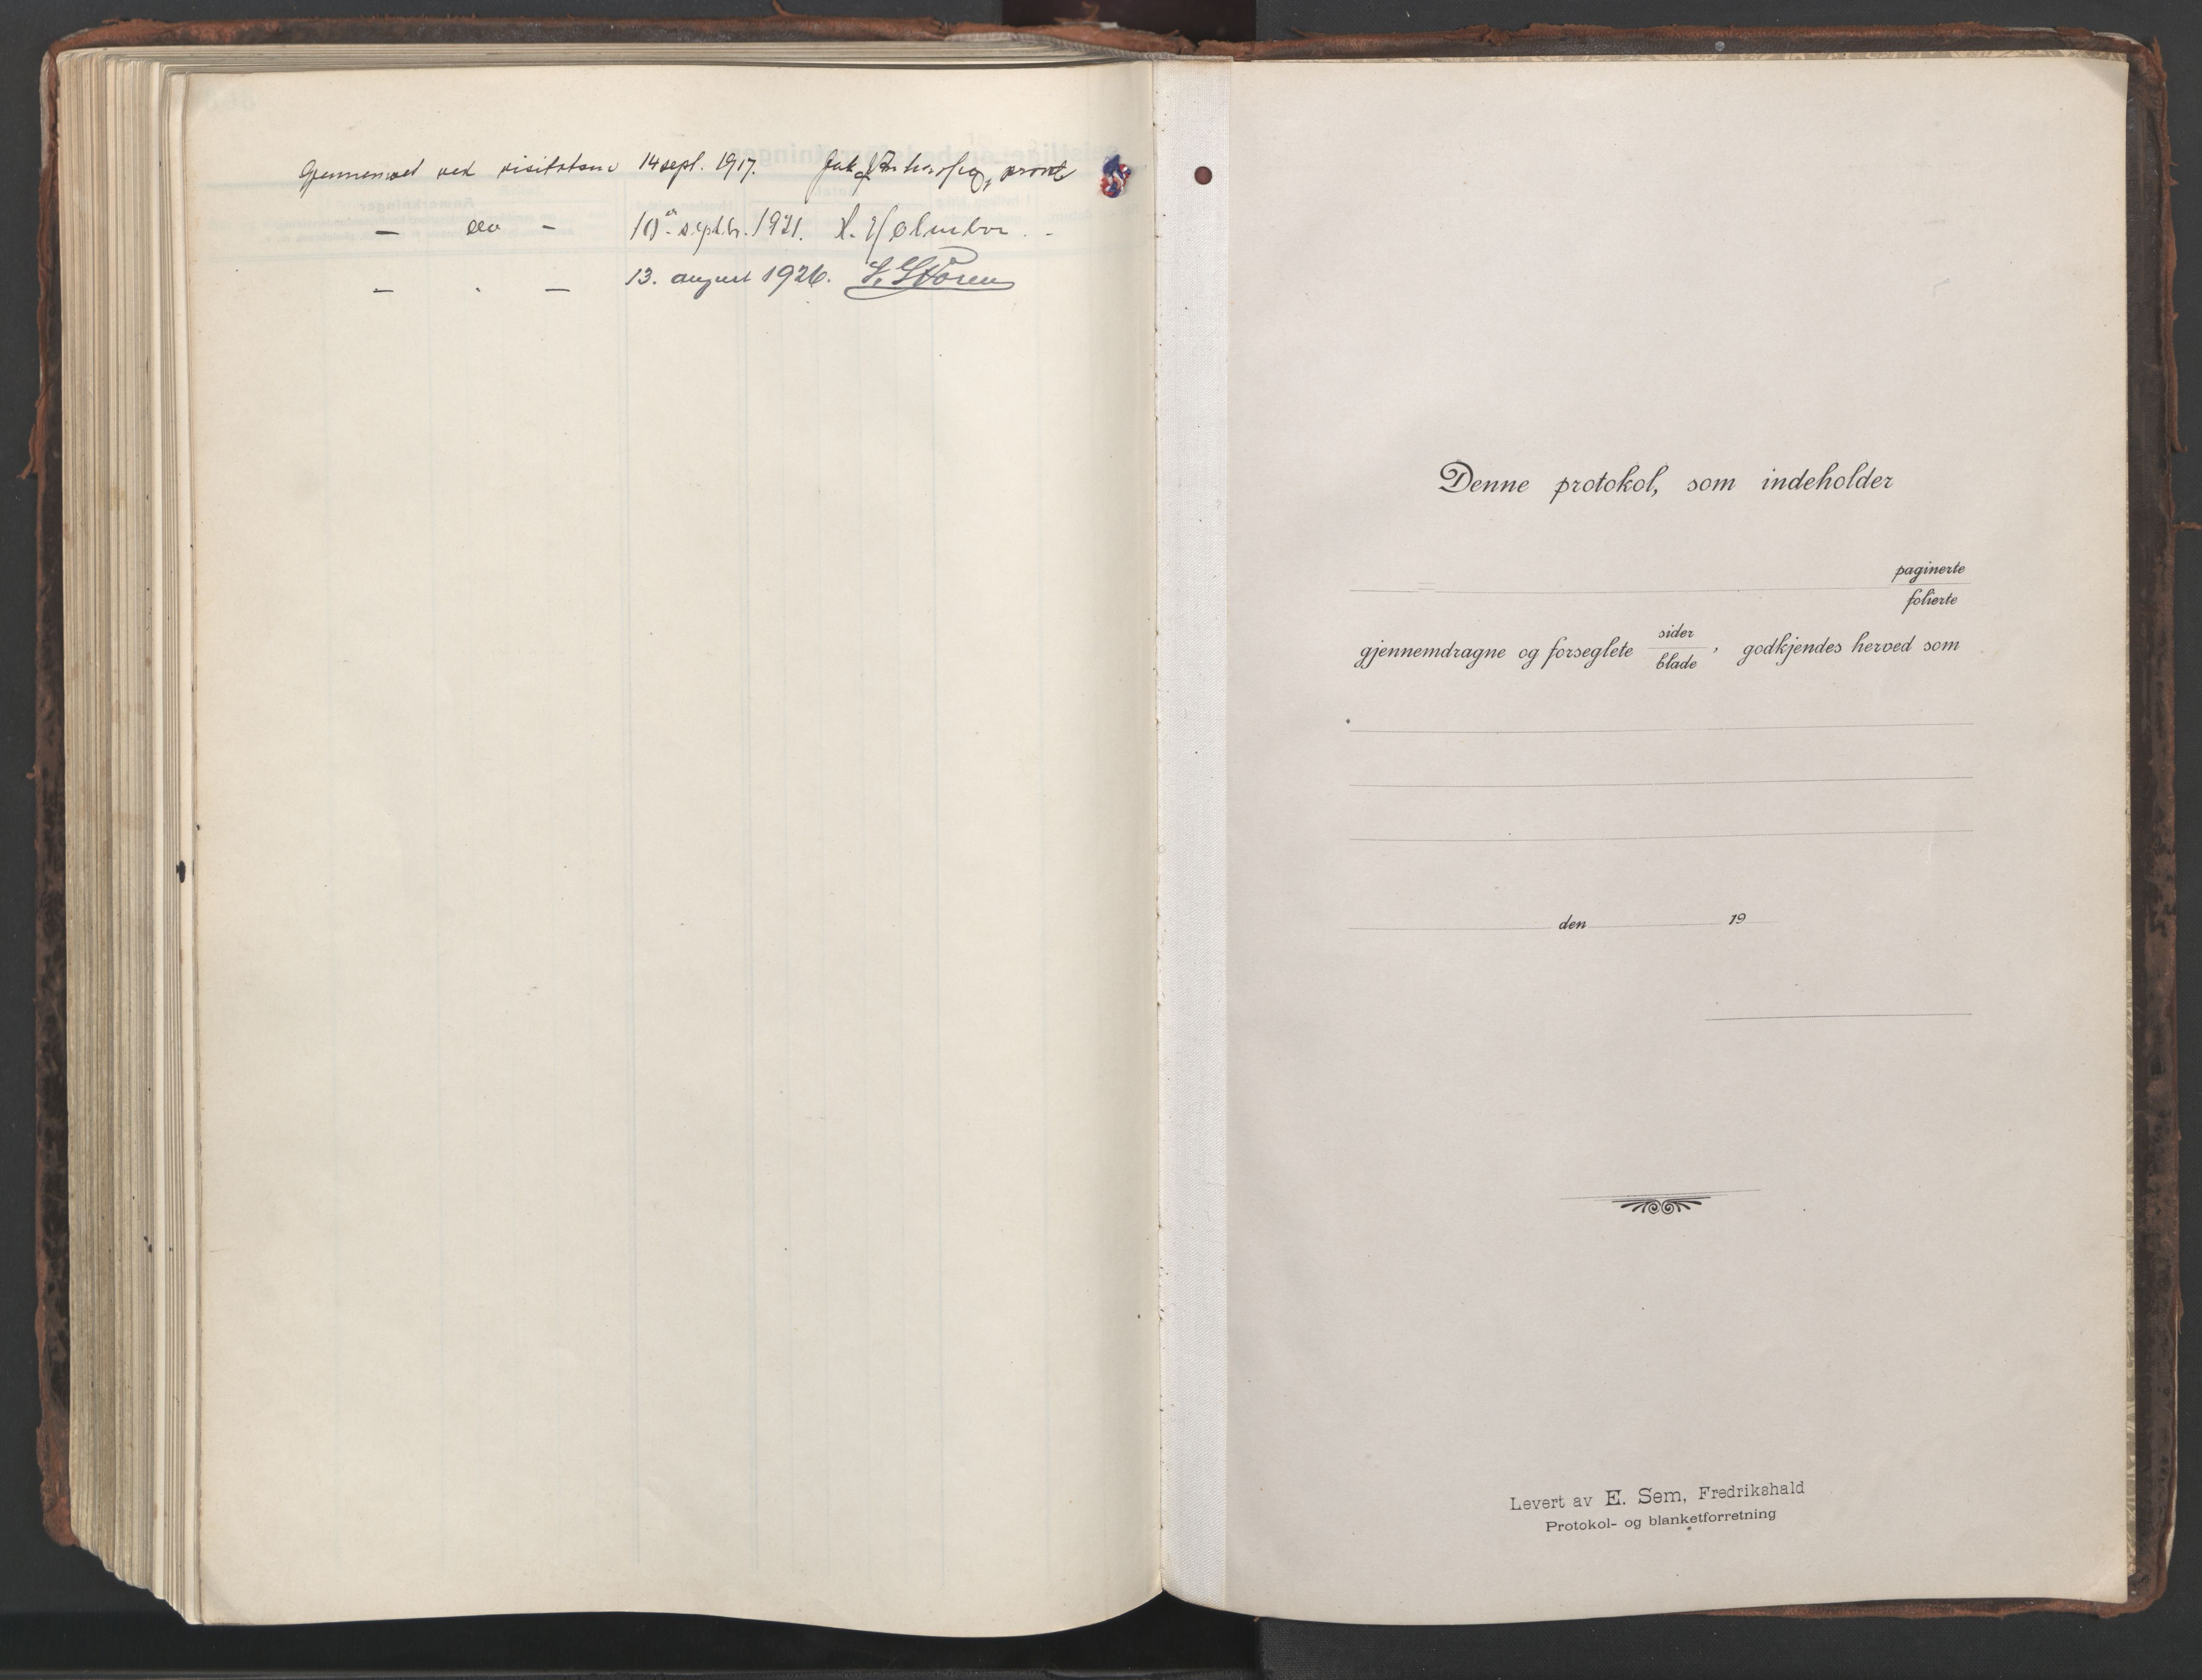 Gjennemset ved visitatsen 14 sept. 1917. Jak. provst
— do — 10de septbr. 1921. H. Holmboe. -
— . — 13. august 1926. S. Støren
Denne protokol, som indeholder
paginerte
folierte
gjennemdragne og forseglete sider blade, godkjendes herved som
den 19
Levert av E. Sem, Fredrikshald
Protokol- og blanketforretning